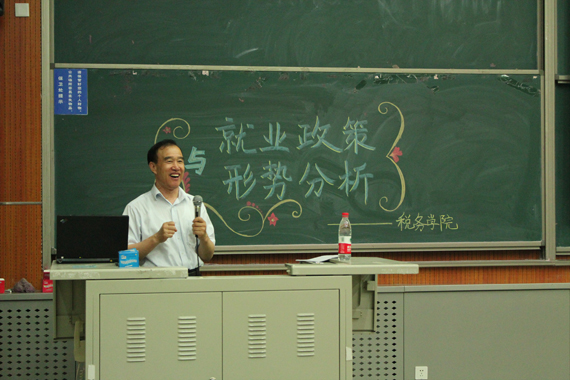 就业政策
与
形势分析
——税务学院